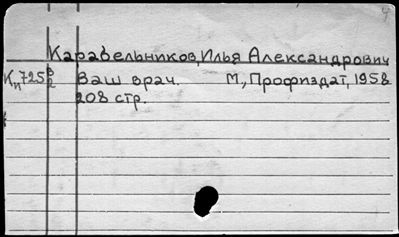 Карабельников, Илья Александрович
Ваш врач. М., Профиздат, 1958
208 стр.